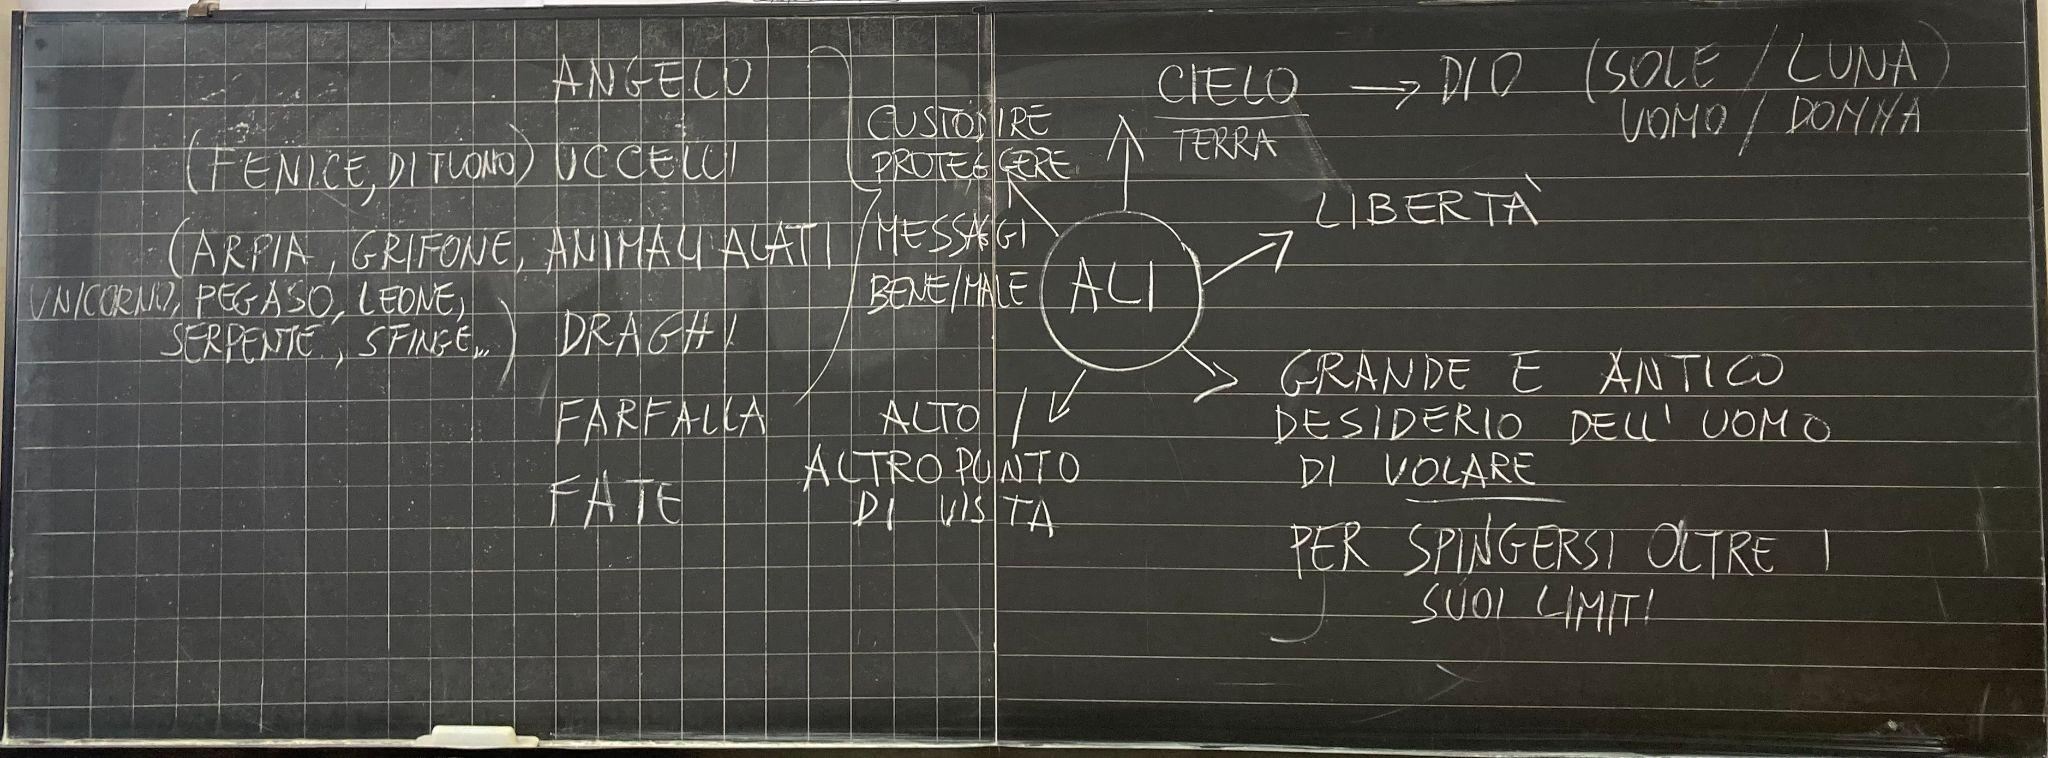 ANGELO
(FENICE, DI TUONO) UCCELLI
(ARPIA, GRIFONE, ANIMALI ALATI
UNICORNO, PEGASO, LEONE,
SERPENTE, SFINGE...)
DRAGHI
FARFALLA
FATE
CUSTODIRE
PROTEGGERE
MESSAGGI
BENE/MALE
ALTO /
ALTRO PUNTO
DI VISTA
ALI
CIELO → DIO (SOLE / LUNA)
TERRA
UOMO / DONNA
LIBERTÀ
GRANDE E ANTICO
DESIDERIO DELL'UOMO
DI VOLARE
PER SPINGERSI OLTRE I
SUOI LIMITI